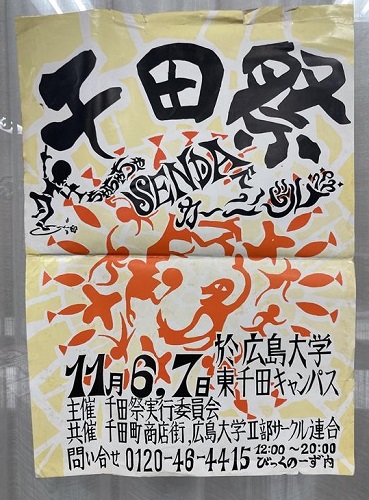 千田祭
SENDA
11月6,7日
於広島大学
東千田キャンパス
主催 千田祭実行委員会
共催 千田町商店街,広島大学II部サークル連合
問い合せ 0120-46-4415
12:00～20:00
びっくのーず内